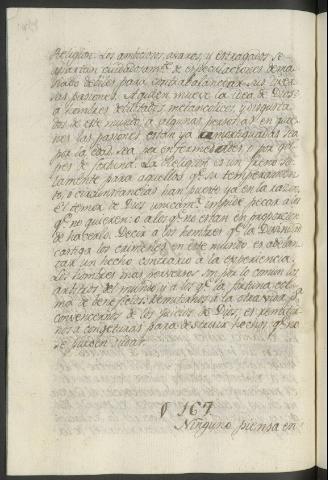 Religion. Los ambiciosos, avaros, y estragados se
apartan cuidadosamte. de especulaciones dema-
siado debiles para contrabalancear sus diver-
sas pasiones. A quien mueve la idea de Dios?
a hombres debilitados melancolicos, y disgusta-
dos de este mundo, a algunas personas en quie-
nes las pasiones estan ya amortiguadas sea
por la edad, sea por enfermedades o por gol-
pes de fortuna. La Religion es un freno so-
lamente para aquellos qe. su temperamen-
to, o circunstancias han puesto ya en la razon.
El temor de Dios unicamte. impide pecar a los
qe. no quieren; o a los qe. no estan en proporcion
de hacerlo. Decir a los hombres qe. la Divinidad
castiga los crimenes en este mundo es abelan-
tar un hecho contrario a la experiencia.
Los hombres mas perversos son por lo comun los
arbitros del mundo, y a los qe. la fortuna col-
ma de beneficios. Remitirnos a la otra vida pa.
convencernos de los juicios de Dios, es remitir-
nos a congeturas para destruir hechos, qe. no
se pueden dudar.
§ 167
Ninguno piensa en